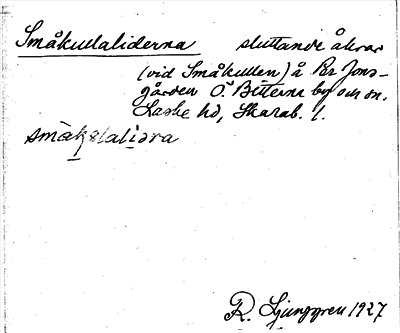 Småkullaliderna sluttande åkrar
(vid Småkullen) å Per Jons-
gården Ö. Bitterna by och sn.
Laske hd, Skarab. l.
R. Ljunggren 1927